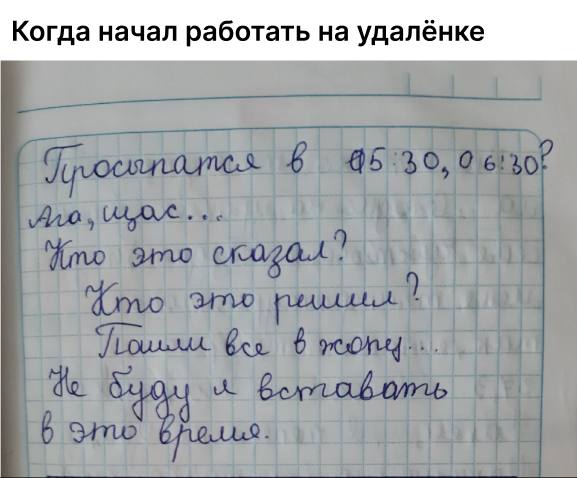 Когда начал работать на удалёнке
Просыпатся в 05:30, 06:30?
Ага, щас...
Кто это сказал?
Кто это решил?
Пошли все в жопу...
Не буду я вставать
в это время.